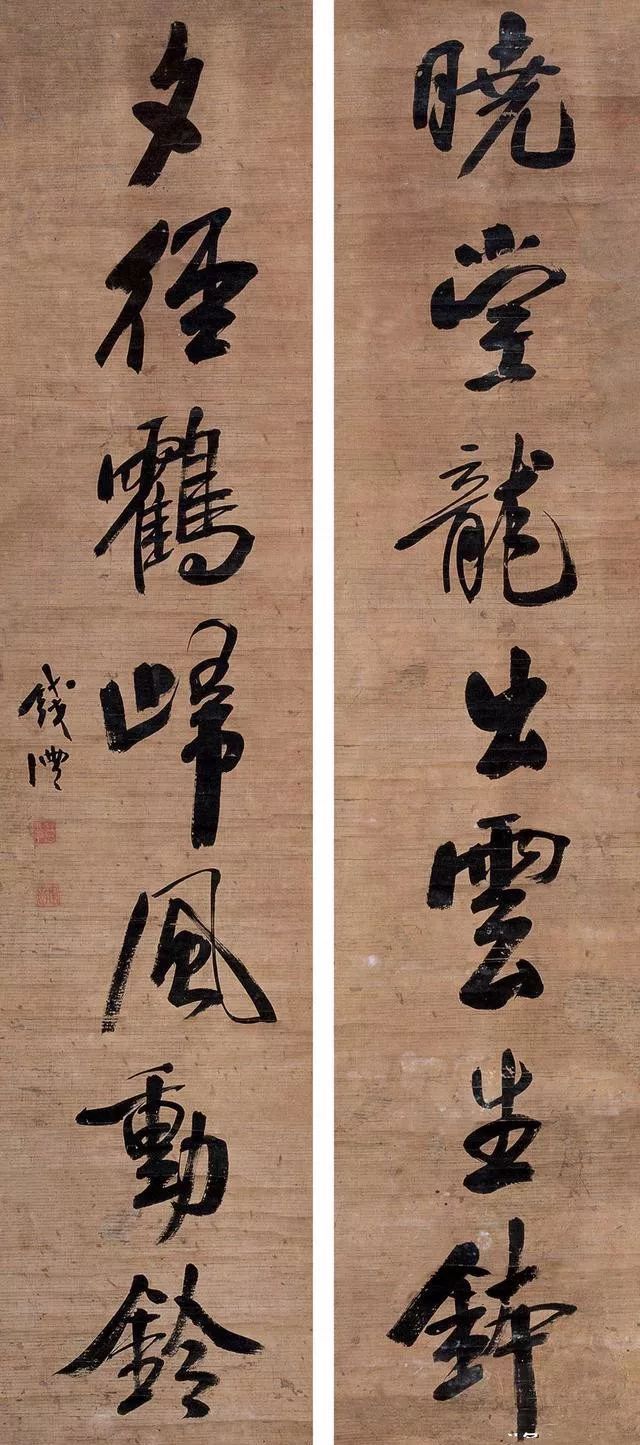 曉堂龍出雲生鉢
夕徑鶴歸風動鈴
錢灃